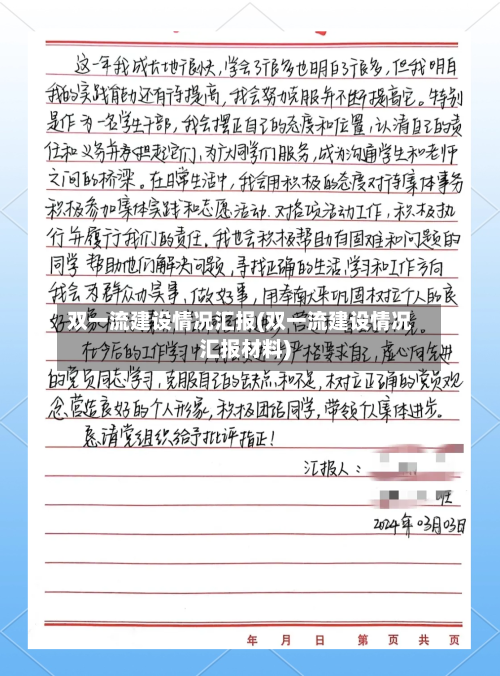 这一年我成长地很快，学会了很多也明白了很多，但我明白
我的实践能力还有待提高，我会努力克服并不断提高它。特别
是作为一名学生干部，我会摆正自己的态度和位置，认清自己的责
任和义务并承担起它们，为广大同学们服务，成为沟通学生和老师
之间的桥梁。在日常生活中，我会用积极的态度对待集体事务
积极参加集体实践和志愿活动.对各项活动工作，积极执
行并履行我们的责任.我也会积极帮助有困难和问题的
同学 帮助他们解决问题，寻找正确的生活,学习和工作方向
我会为群众办实事，做好事，用奉献来巩固树立个人的良
好
双一流建设情况汇报(双一流建设情况
汇报材料)
在今后的工作学习中 严格要求自己，虚心向先进
的党员同志学习，克服自己的缺点和不足，树立正确的党员观
念,营造良好的个人形象，积极团结同学，带领个人集体进步。
恳请党组织给予批评指正！
汇报人：
班
2024年03月03日
年 月 日 第 页 共 页